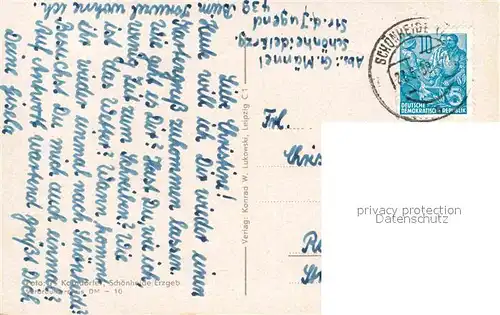 Liebe Christine!
Heute will ich Dir wieder einen
Kartengruß zukommen lassen.
Wie geht es Dir? Hast Du wie ich
wenig Zeit zum Schreiben? Wie
ist das Wetter? Wann kommt
Ihr wieder einmal nach Schönheide?
Besuchst Du mich auch einmal?
Auf Antwort wartend grüßt Dich
Deine Gisela
439 Beim
wohne ich.
Abs.: G. Männel
Schönheide/Erzg.
Str. d. Jugend
Verlag: Konrad W. Lukowski, Leipzig C 1
Schönheide Erzgeb
DM — 16
Frl.
SCHÖNHEIDE
DEUTSCHE
DEMOKRATISCHE REPUBLIK
privacy protection
Datenschutz